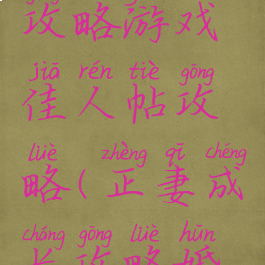 攻略游戏
jiā rén tiè gōng
佳人帖攻
lüè zhèng qī chéng
略(正妻成
cháng gōng lüè hūn
长攻略婚